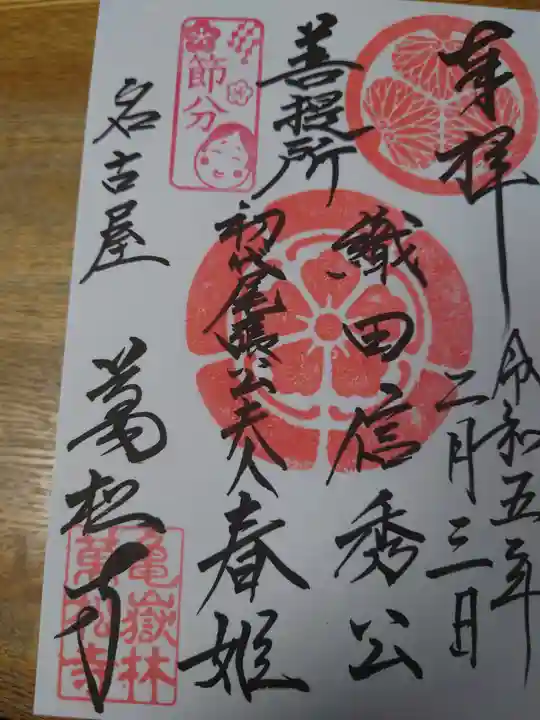 奉拝
令和五年
二月三日
菩提所
織田信秀公
初代尾張公夫人春姫
節分
名古屋
萬松寺
亀嶽林
萬松寺